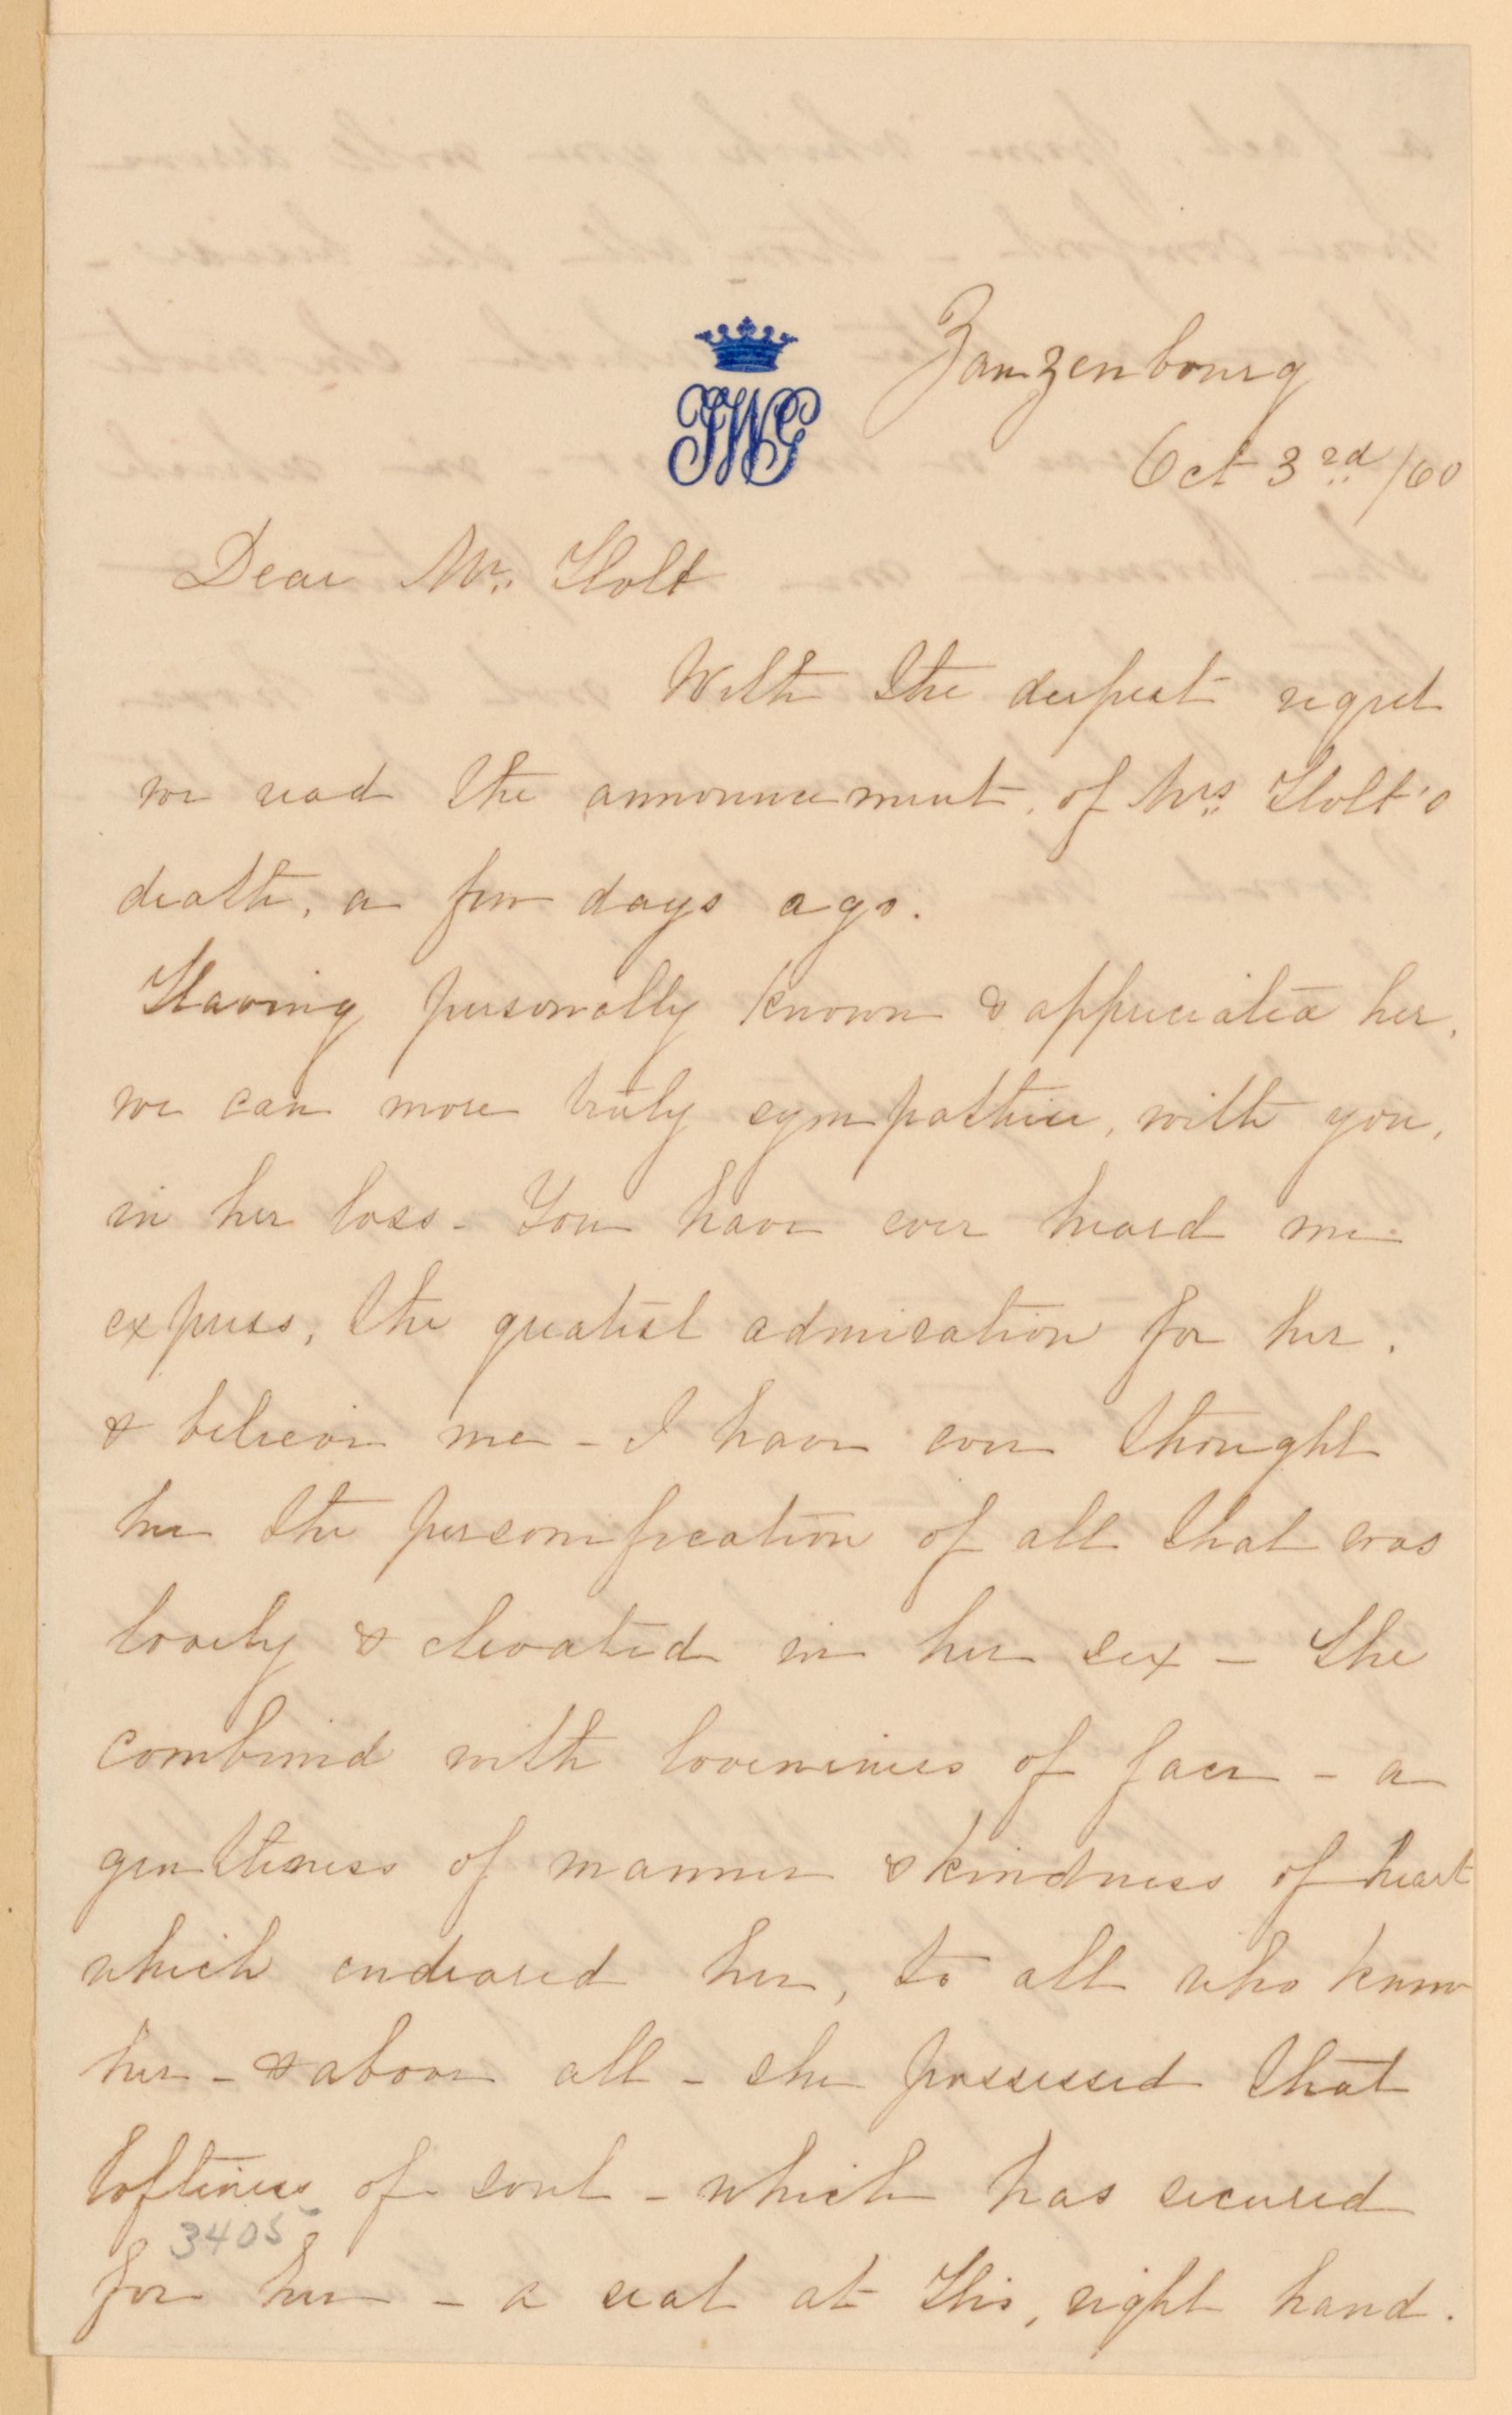 Zanzenbourg
Oct 3rd /60
JWG
Dear Mr. Holt
With the deepest regret
we read the announcement, of Mrs. Holt's
death, a few days ago.
Having personally known & appreciated her,
we can more truly sympathise, with you,
in her loss - You have ever heard me
express, the greatest admiration for her,
& believe me - I have ever thought
her the personification of all that was
lovely & elevated in her sex - She
combined with loveliness of face - a
gentleness of manner & kindness of heart
which endeared her, to all who knew
her - & above all - she possessed that
loftiness of soul - which has secured
3405
for her - a seat at His, right hand.